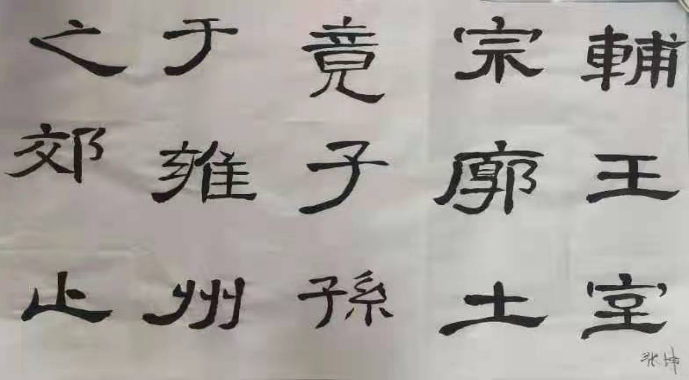 輔王室
宗廓土
竟子孫
于雍州
之郊止
张坤